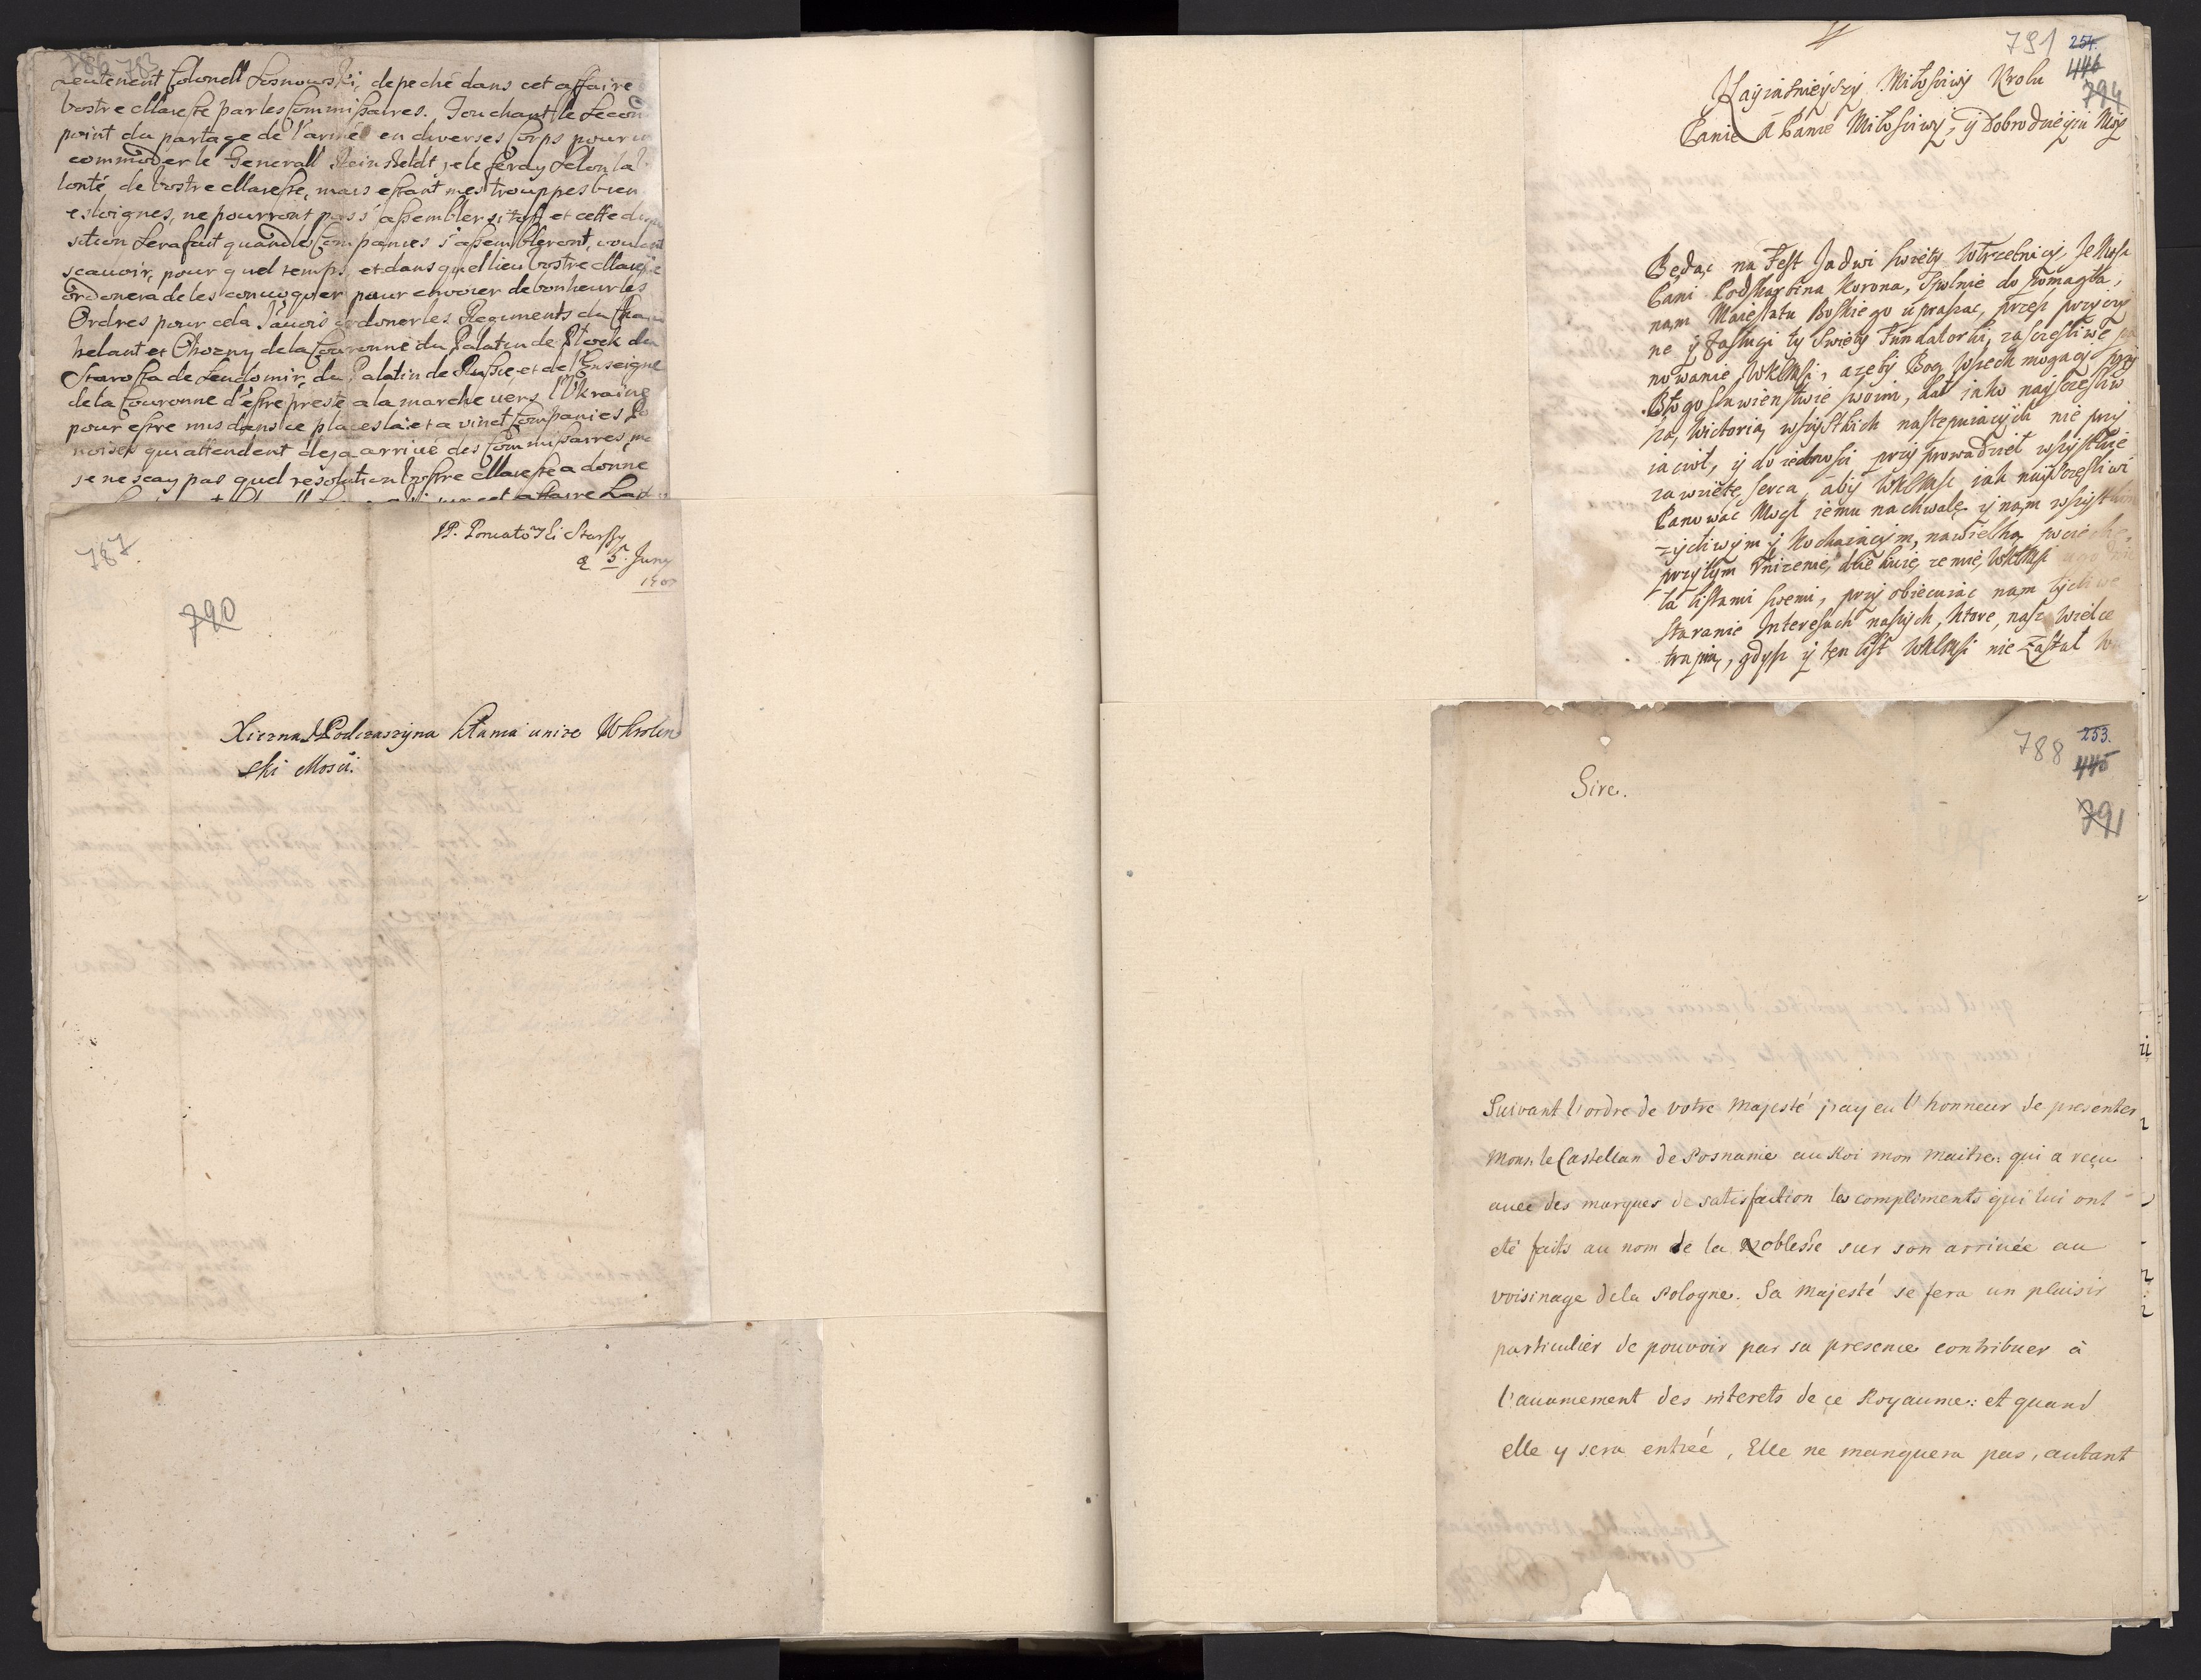 786 793
Leutenent Colonell Sosnowski, depeché dans cet affaire
Vostre Maieste par les Commissaires. Touchant le Secon
point du partage de l'armée en diverses Corps pour
commoder le Generall Reinskeldt, je le feray Selon la
lonté de Vostre Maieste, mais estant mes trouppes bien
esloignes, ne pourront pas s'assembler si tost et cette
sition Sera fait quand les Companies s'assembleront, voulant
scauoir, pour quel temps, et dans quel lieu Vostre Maieste
ordonera de les convoquer pour envoier de bonheur les
Ordres pour cela. J'auois ordoner les Regiments du
helant et Chozny de la Couronne du Palatin de Plock du
Starosta de Sendomir, du Palatin de Russie, et de l'Enseigne
de la Couronne d'estre preste a la marche vers l'Ukraine
pour estre mis dans ce places la et a vinct Companies
noises qui attendent deja arrivé des Commissaires,
je ne scay pas quel resolution Vostre Maieste a donné
cet affaire
787
JP. Poniatowski Starszy
d 5. Juny
790
Xiezna JPodczaszyna kłania unize WKrolew
ski Mosci.
791 254.
446
794
Nayiasnieyszy Miłosciwy Krolu
Panie A Panie Miłosciwy, y Dobrodzieyiu Moy
Będąc na Fest Jadwi swięty w Trzebnicy, Je Mosc
Pani Podskarbina Korona, Spolnie do pomagła,
nam Maiestatu Boskiego upraszac, przez przyczy
ne y Zasługi ty Swięty Fundatorki, za szczesliwe pa
nowanie WKMsi, azeby Bog Wszechmogacy przy
Błogosławienstwie swoim, dał iako nayszczesliw
szą, wictorią, wszystkich następuiących nie przy
iacioł, y do iednosci przyprowadzieł wszystkie
zawziete serca, aby WKMsc iak nayszczesliwi
Panowac Mogł iemu na chwałę y nam wszystkim
zycliwym y Kochaiącym, na wielką pociechę,
przytym Unizenie, dziekuię ze mie, WKMsc
ta listami swemi, przy obiecuiąc nam zycliwe
staranie Interesach naszych, ktore, nasz wielce
trapią, gdysz y ten list WKMsi nie zastał w
788 253.
445
791
Sire.
Suivant l'ordre de votre Majesté j'ay eu l'honneur de presenter
Mons. le Castellan de Posnanie au Roi mon maitre: qui a reçu
avec des marques de satisfaction les compliments qui lui ont
eté faits au nom de la Noblesse sur son arrivée au
voisinage de la Pologne. Sa Majesté se fera un plaisir
particulier de pouvoir par sa presence contribuer à
l'avancement des interets de ce Royaume: et quand
elle y sera entrée, Elle ne manquera pas, autant